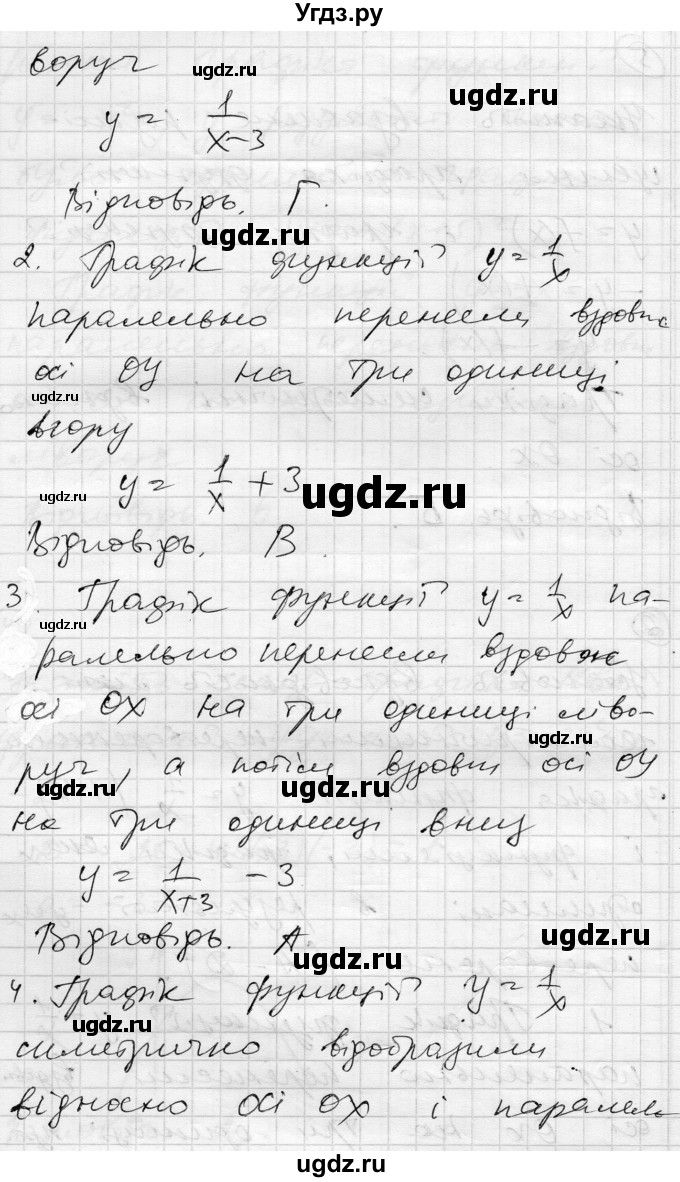 Угдз.ру
воруч
ugdz.ru
ugdz.ru
y = 1/(x-3)
ugdz.ru
Відповідь. Г.
ugdz.ru
2. Графік функції y = 1/x
паралельно перенесли вздовж
осі OY на три одиниці
ugdz.ru
вгору
ugdz.ru
y = 1/x + 3
ugdz.ru
Відповідь. В.
3. Графік функції y = 1/x па-
ралельно перенесли вздовж
осі OX на три одиниці ліво-
ugdz.ru
руч, а потім вздовж осі OY
ugdz.ru
ugdz.ru
на три одиниці вниз
y = 1/(x+3) - 3
Відповідь. А.
ugdz.ru
ugdz.ru
4. Графік функції y = 1/x
ugdz.ru
симетрично відобразили
відносно осі OX і паралель
ugdz.ru